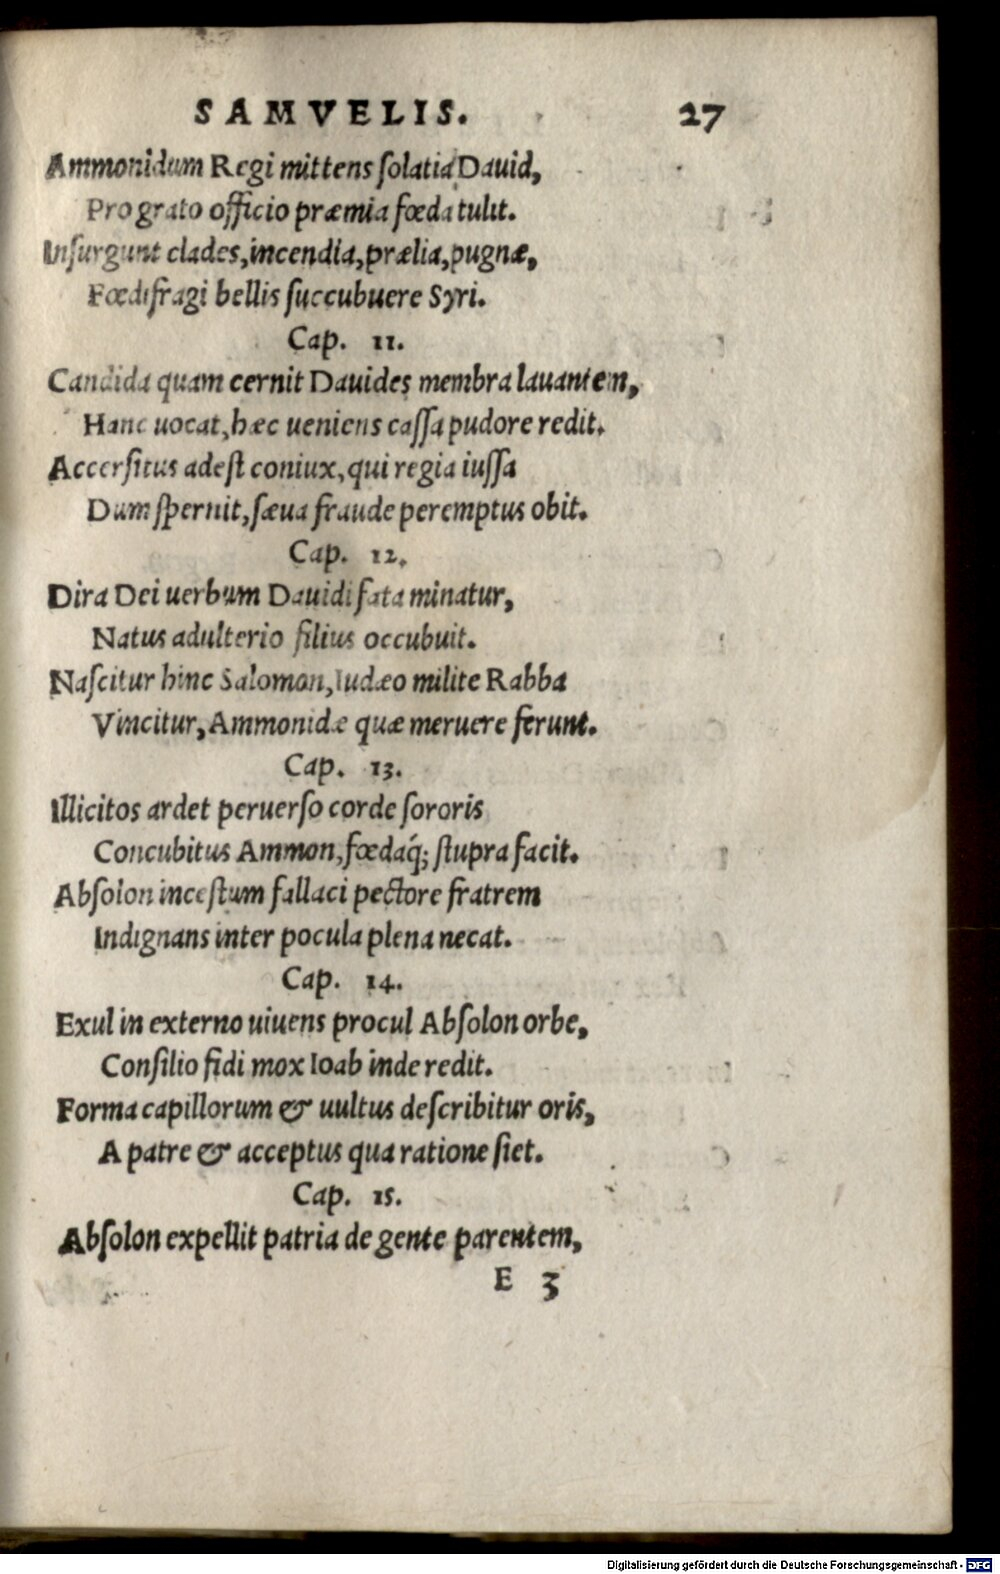 SAMVELIS. 27
Ammonidum Regi mittens ſolatia Dauid,
Pro grato officio præmia fœda tulit.
Inſurgunt clades, incendia, prælia, pugnæ,
Fœdifragi bellis ſuccubuere Syri.
Cap. 11.
Candida quam cernit Dauides membra lauantem,
Hanc uocat, hæc ueniens caſſa pudore redit.
Accerſitus adeſt coniux, qui regia iuſſa
Dum ſpernit, ſæua fraude peremptus obit.
Cap. 12.
Dira Dei uerbum Dauidi fata minatur,
Natus adulterio filius occubuit.
Naſcitur hinc Salomon, Iudæo milite Rabba
Vincitur, Ammonidæ quæ meruere ferunt.
Cap. 13.
Illicitos ardet peruerſo corde ſororis
Concubitus Ammon, fœdaq́; ſtupra facit.
Abſolon inceſtum fallaci pectore fratrem
Indignans inter pocula plena necat.
Cap. 14.
Exul in externo uiuens procul Abſolon orbe,
Conſilio fidi mox Ioab inde redit.
Forma capillorum & uultus deſcribitur oris,
A patre & acceptus qua ratione ſiet.
Cap. 15.
Abſolon expellit patria de gente parentem,
E 3
Digitalisierung gefördert durch die Deutsche Forschungsgemeinschaft - DFG